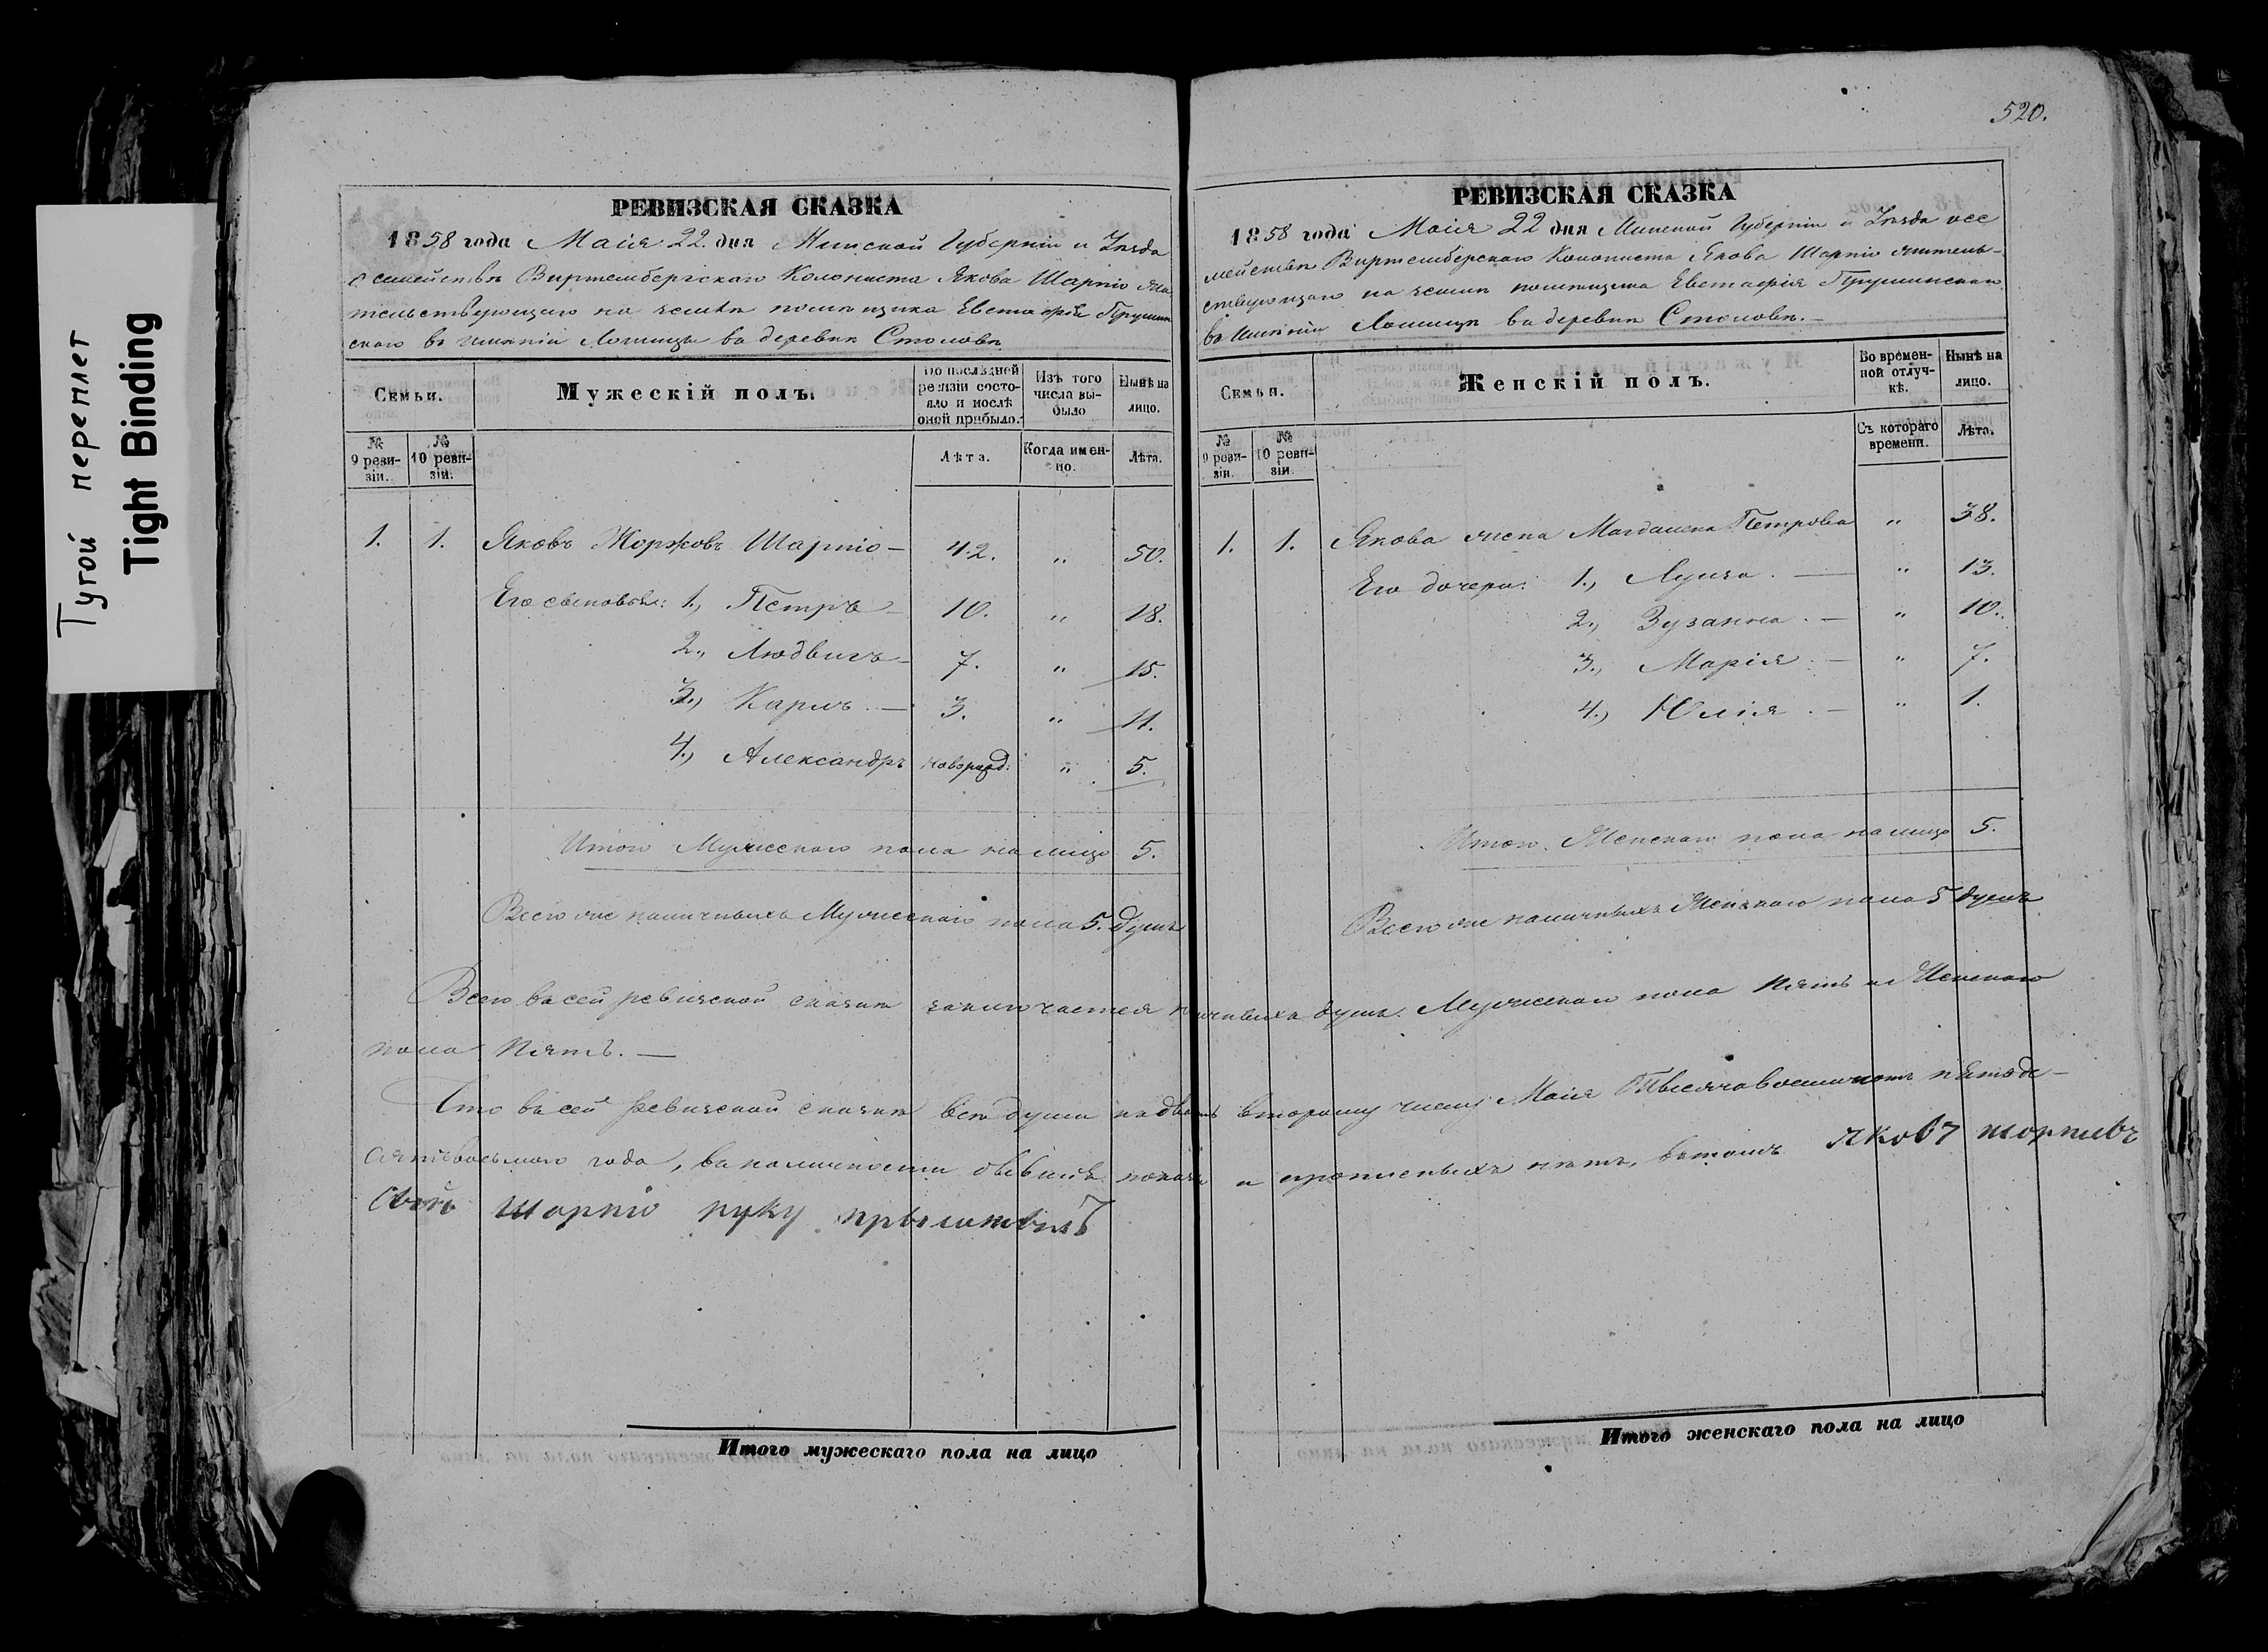 Тугой переплет
Tight Binding
РЕВИЗСКАЯ СКАЗКА
1858 года Маія 22. дня Минской Губерніи и Уѣзда
о семействѣ Виртембергскаго Колониста Якова Шарпіо жи
тельствующаго на землѣ помѣщика Евстафія Прушин
скаго въ имѣніи Лошицы въ деревнѣ Столовѣ
Семьи.
Мужескій полъ.
По послѣдней ревизіи состояло и послѣ оной прибыло.
Изъ того числа выбыло
Нынѣ на лицо.
№ 9 ревизіи.
№ 10 ревизіи.
Лѣта.
Когда именно.
Лѣта.
1. 1. Яковъ Жоржовъ Шарпіо — 42. „ 50.
Его сыновья: 1., Петръ — 10. „ 18.
2., Людвигъ — 7. „ 15.
3., Карлъ. — 3. „ 11.
4., Александръ новорожд: „ 5.
Итого Мужескаго пола на лицо 5.
Всего же наличныхъ Мужескаго пола 5. душъ
520.
РЕВИЗСКАЯ СКАЗКА
1858 года Маія 22 дня Минской Губерніи и Уѣзда о се
мействѣ Виртембергскаго Колониста Якова Шарпіо житель-
ствующаго на землѣ помѣщика Евстафія Прушинскаго
въ Имѣніи Лошицѣ въ деревнѣ Столовѣ. —
Семьи.
Женскій полъ.
Во временной отлучкѣ.
Нынѣ на лицо.
№ 9 ревизіи.
№ 10 ревизіи.
Съ котораго времени.
Лѣта.
1. 1. Якова жена Магдалена Петрова „ 38.
Его дочери: 1., Луиза. — „ 13.
2., Зузанна. — „ 10.
3., Марія. — „ 7.
4., Юлія. — „ 1.
Итого Женскаго пола на лицо 5.
Всего же наличныхъ Женскаго пола 5 душъ
Всего въ сей ревизской сказкѣ заключается душъ. Мужескаго пола пять и Женскаго
пола пять. —
Что въ сей ревизской сказкѣ всѣ души второму числу Маія Тысяча восемьсотъ пятьде-
сятъ восьмого года, въ наличности бывшіе и прописныхъ нѣтъ, въ томъ яковъ
шарпіо руку
Итого мужескаго пола на лицо
Итого женскаго пола на лицо